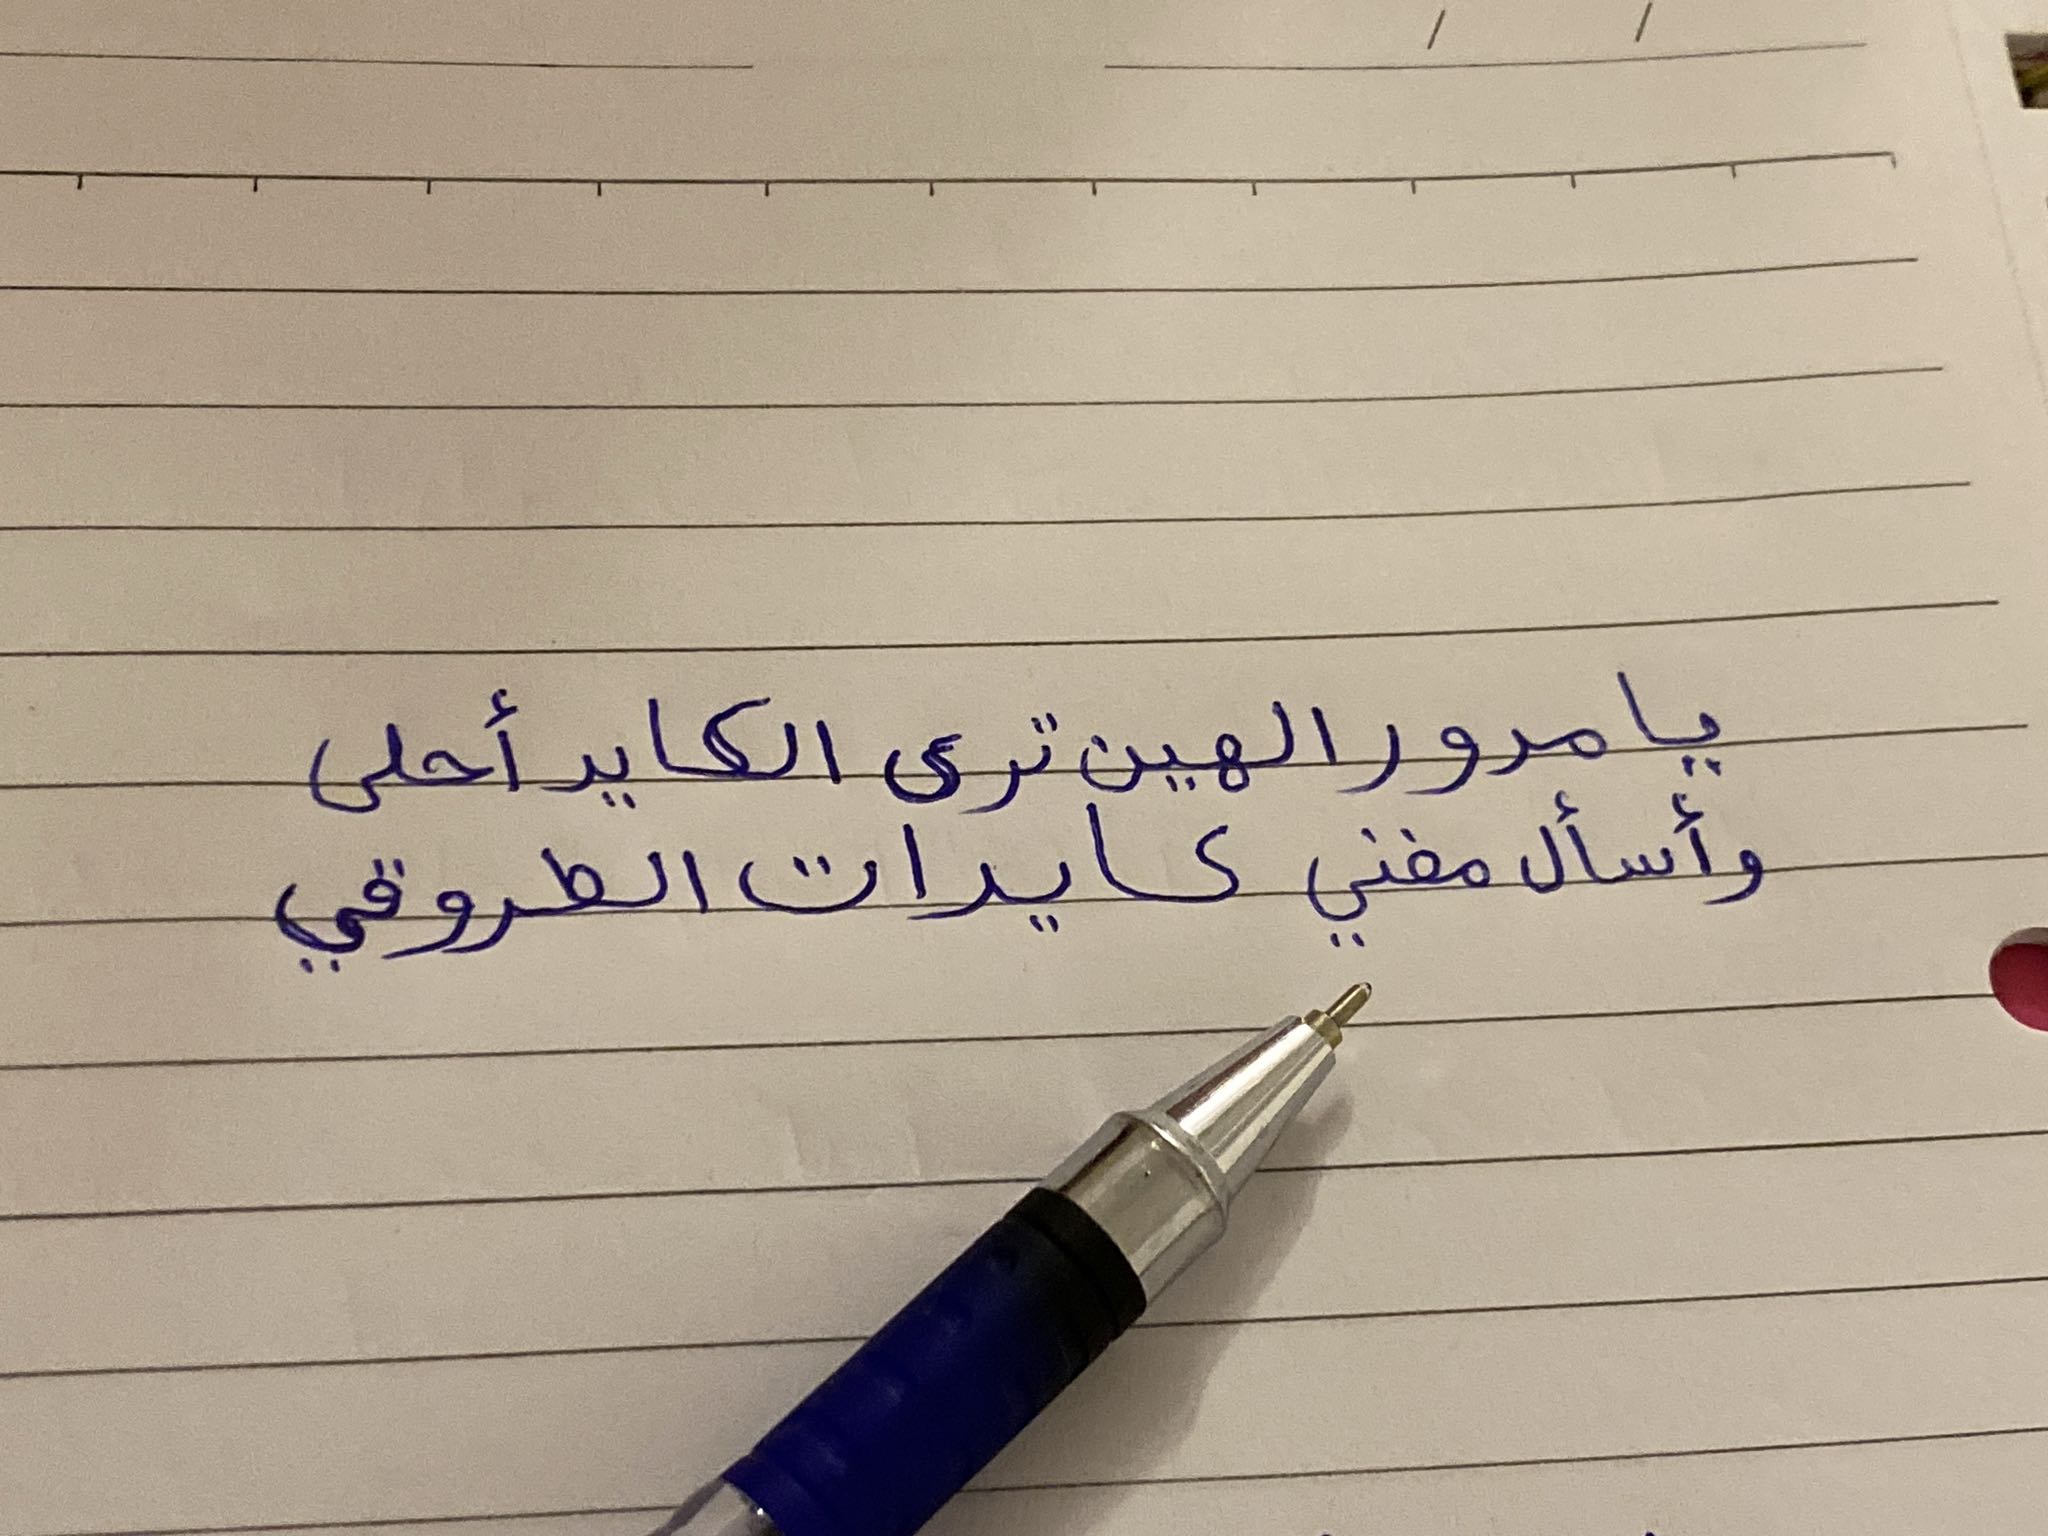 يا مدور الهين ترى الكايد أحلى
وأسأل مغني كايدات الطروقي